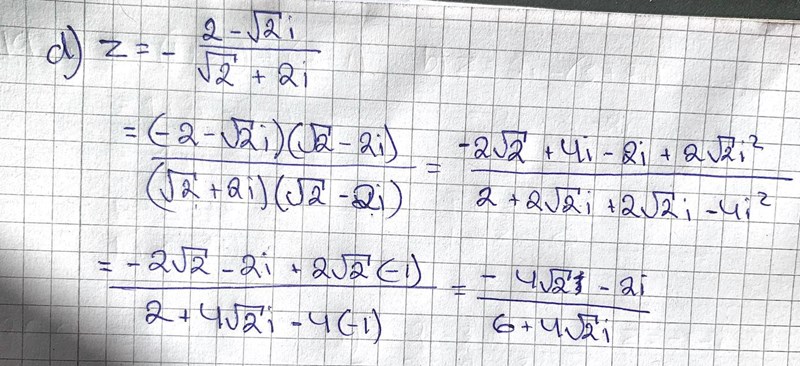 d) z = - (2 - √2 i)/(√2 + 2i)
= ((-2 - √2 i)(√2 - 2i))/((√2 + 2i)(√2 - 2i)) = (-2√2 + 4i - 2i + 2√2 i²)/(2 + 2√2 i + 2√2 i - 4i²)
= (-2√2 - 2i + 2√2 (-1))/(2 + 4√2 i - 4(-1)) = (-4√2 - 2i)/(6 + 4√2 i)